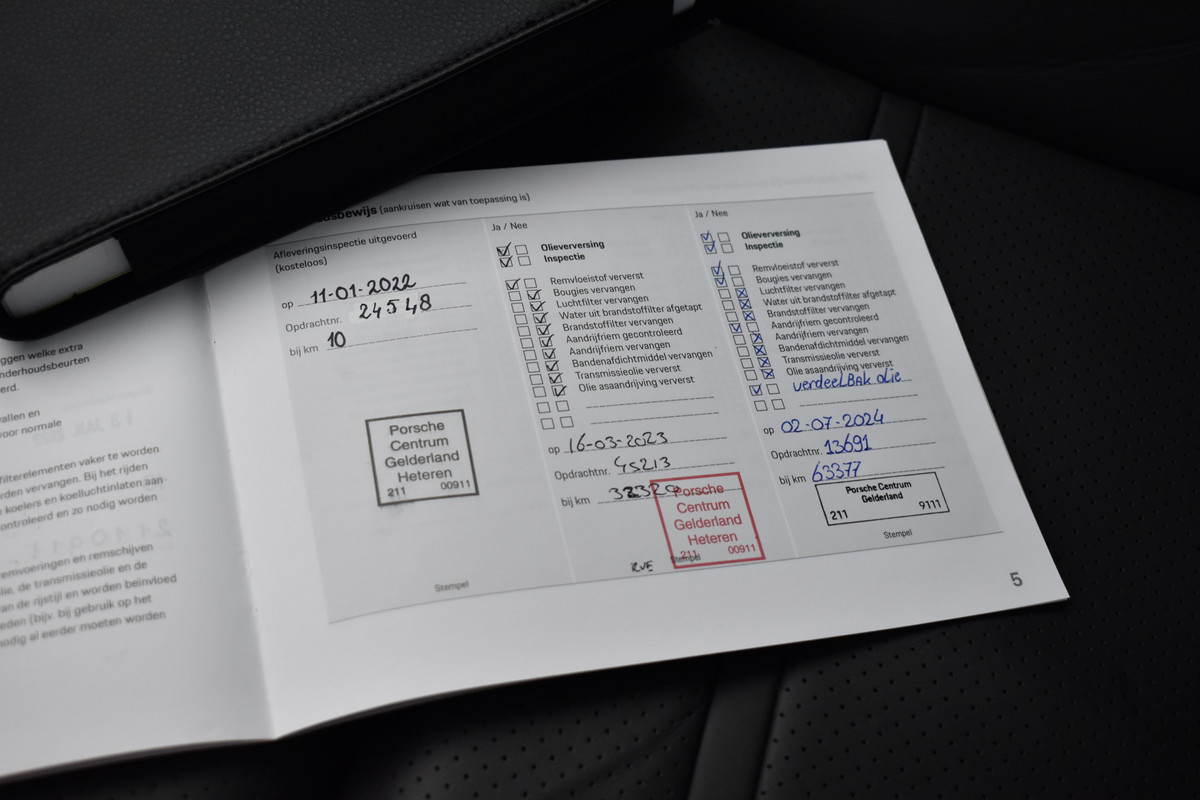 ggen welke extra
nderhoudsbeurten
erd.
vallen en
voor normale
filterelementen vaker te worden
rden vervangen. Bij het rijden
e koelers en koelluchtinlaten aan-
ontroleerd en zo nodig worden
emvoeringen en remschijven
lie, de transmissieolie en de
van de rijstijl en worden beïnvloed
eden (bijv. bij gebruik op het
nodig al eerder moeten worden
dsbewijs (aankruisen wat van toepassing is)
Afleveringsinspectie uitgevoerd
(kosteloos)
op 11-01-2022
Opdrachtnr. 24548
bij km 10
Porsche
Centrum
Gelderland
Heteren
211 00911
Stempel
Ja / Nee
Olieverversing
Inspectie
Remvloeistof ververst
Bougies vervangen
Luchtfilter vervangen
Water uit brandstoffilter afgetapt
Brandstoffilter vervangen
Aandrijfriem gecontroleerd
Aandrijfriem vervangen
Bandenafdichtmiddel vervangen
Transmissieolie ververst
Olie asaandrijving ververst
op 16-03-2023
Opdrachtnr. 45213
bij km 32320
Porsche
Centrum
Gelderland
Heteren
211 00911
Stempel
RVE
Ja / Nee
Olieverversing
Inspectie
Remvloeistof ververst
Bougies vervangen
Luchtfilter vervangen
Water uit brandstoffilter afgetapt
Brandstoffilter vervangen
Aandrijfriem gecontroleerd
Aandrijfriem vervangen
Bandenafdichtmiddel vervangen
Transmissieolie ververst
Olie asaandrijving ververst
verdeelBak olie
op 02-07-2024
Opdrachtnr. 13691
bij km 63377
Porsche Centrum
Gelderland
211 9111
Stempel
5